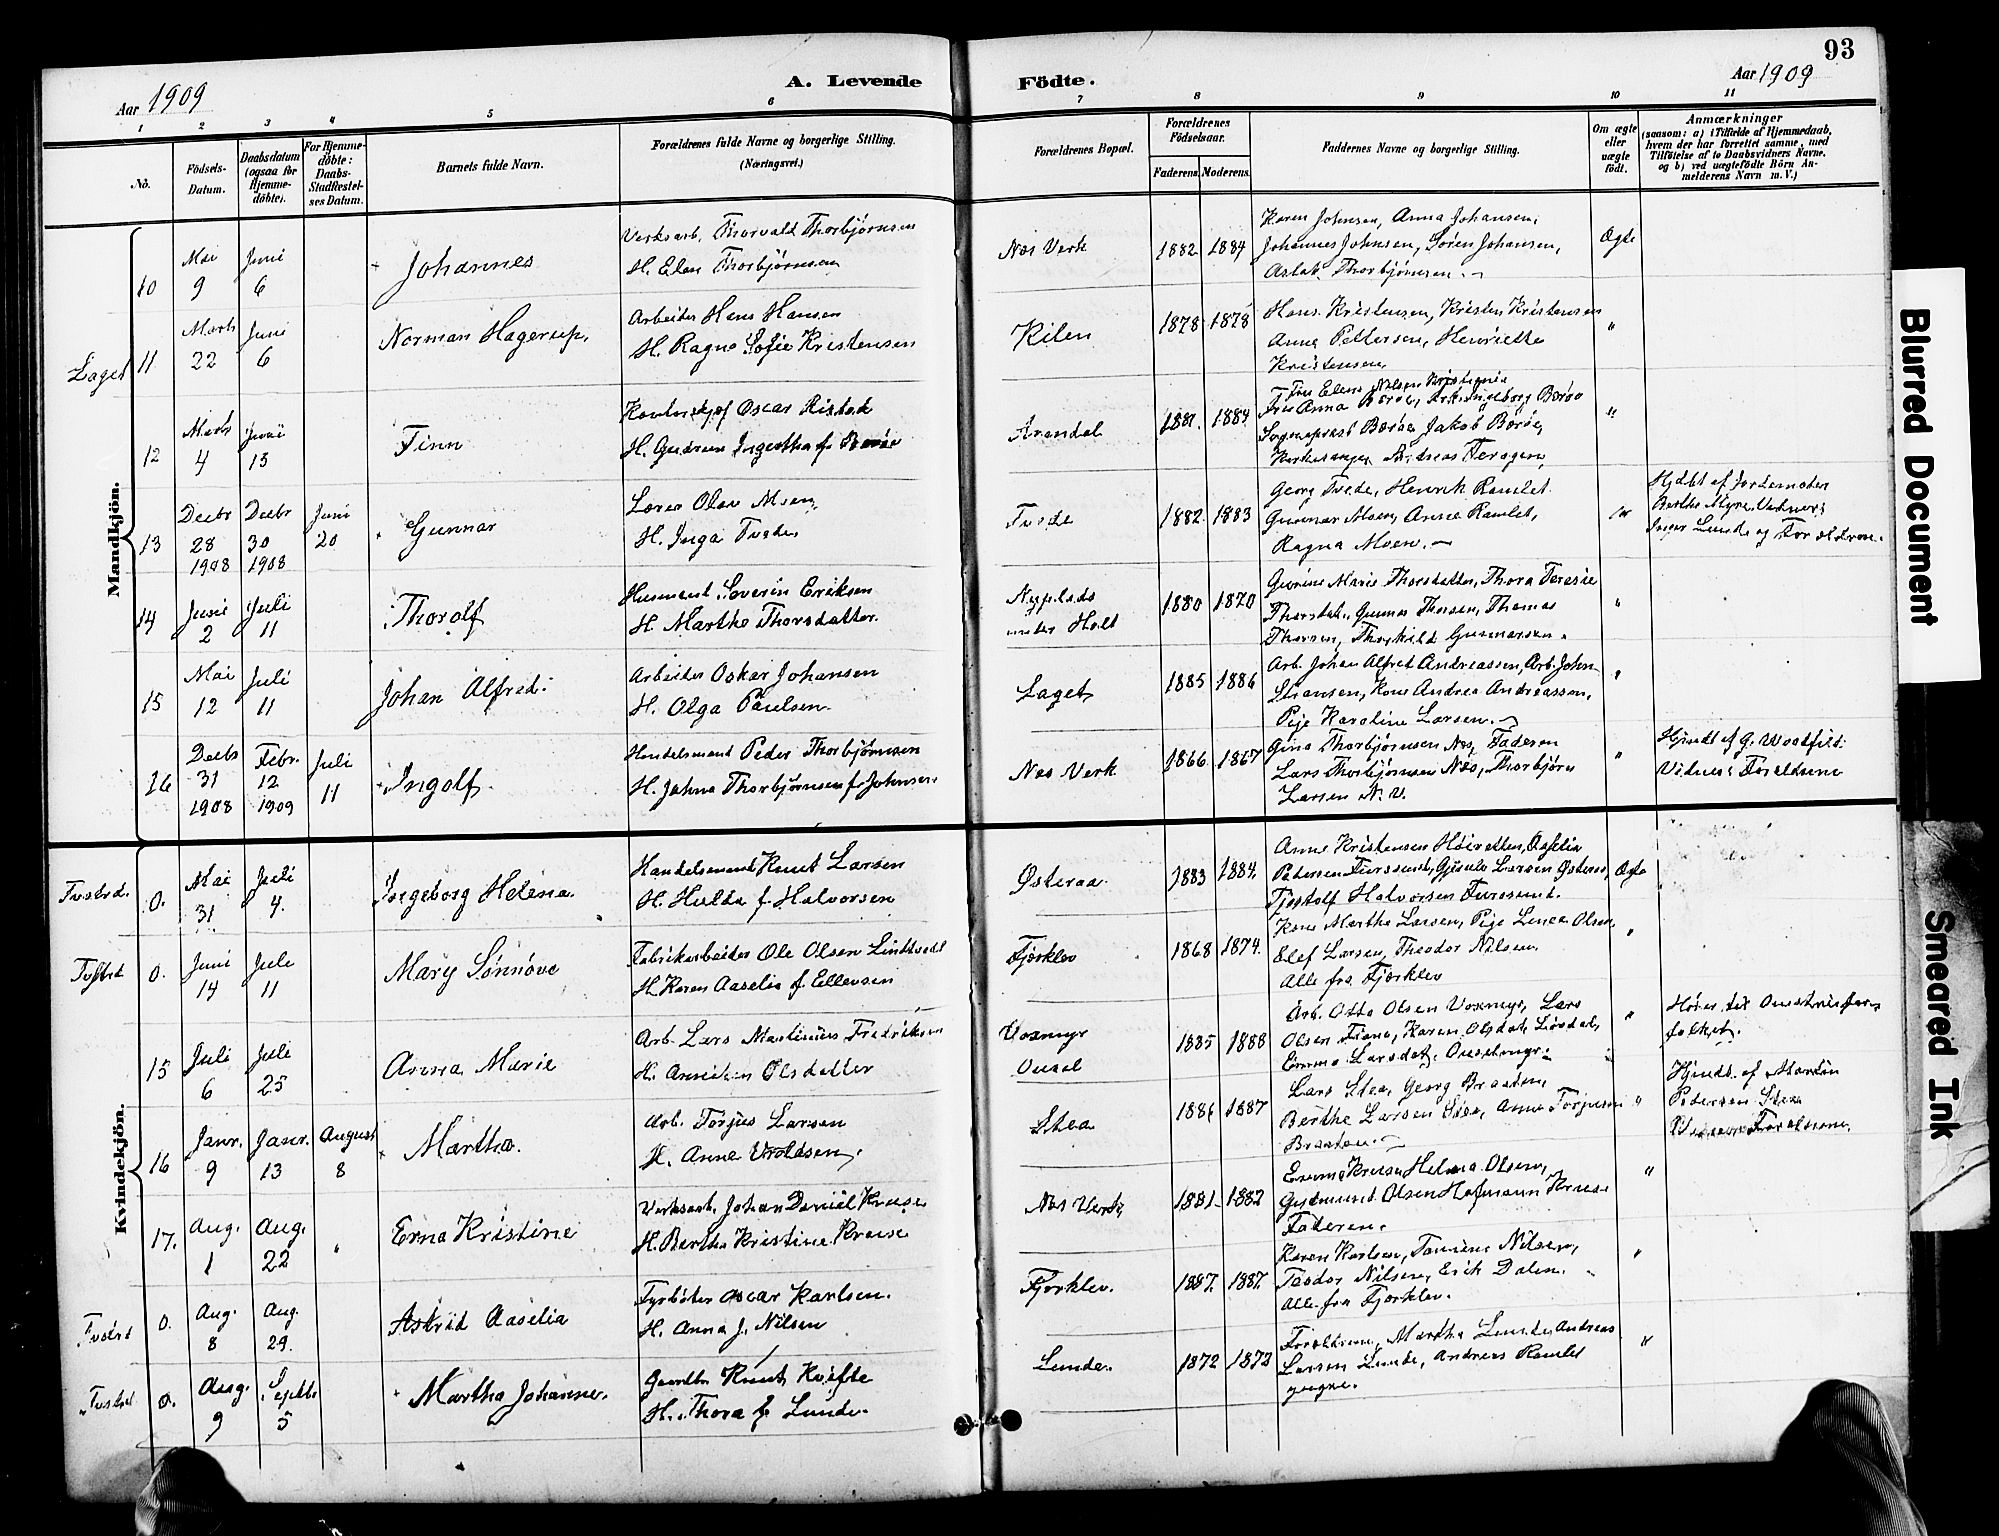 93
Aar 1909
A. Levende
Födte.
Aar 1909
1 2 3 4 5 6 7 8 9 10 11
No.
Födsels-
Datum.
Daabsdatum
(ogsaa for
Hjemme-
döbte).
For Hjemme-
döbte:
Daabs-
Stadfæstel-
ses Datum.
Barnets fulde Navn.
Forældrenes fulde Navne og borgerlige Stilling.
(Næringsvei.)
Forældrenes Bopæl.
Forældrenes
Födselsaar.
Faderens. Moderens.
Faddernes Navne og borgerlige Stilling.
Om ægte
eller
uægte
født.
Anmærkninger
(saasom: a) i Tilfælde af Hjemmedaab,
hvem der har forrettet samme, med
Tilføielse af to Daabsvidners Navne,
og b) ved uægtefödte Börn An-
melderens Navn m. V.)
Mandkjön.
10
Mai
9
Juni
6
Johannes
Verksarb. Thorvald Thorbjørnsen
H. Elen Thorbjørnsen
Nes Verk
1882 1884
Karen Johnsen, Anna Johansen,
Johannes Johnsen, Søren Johansen,
Aslak Thorbjørnsen.
Ægte
Laget
11
Marts
22
Juni
6
Norman Hagerup.
Arbeider Hans Hansen
H. Ragna Sofie Kristensen
Kilen
1878 1878
Hans Kristensen, Kristen Kristensen
Anna Pettersen, Henriette
Kristensen,
"
12
Marts
4
Juni
13
Finn
Oscar
H. Gudrun
Arendal
1884
Fru Elena Nilsen Kristiania
Fru Anna Borøe, Ingeborg Borøe
Sogneprest Borøe, Jakob Borøe,
Kirkesanger Andreas Terogen,
"
13
Decbr
28
1908
Decbr
30
1908
Juni
20
Gunnar
Lærer Olav Moen,
H. Inga Tvede
Tvede
1882 1883
Georg Tvede, Henrik Ramlet
Gunnar Moen, Anne Ramlet,
Ragna Moen.
Hjdbt af Jordemoder
Berthe Myre, Vidner:
Inger Lunde og Forældrene.
14
Juni
2
Juli
11
Thorolf
Husmand Severin Eriksen
H. Marthe Thorsdatter.
under Holt
1880 1870
Gurine Marie Thorsdatter, Thora Teresie
Thorsdat., Gunnar Thorsen, Thomas
Thorsen, Thorkild Gunnarsen.
"
15
Mai
12
Juli
11
Johan Alfred.
Arbeider Oskar Johansen
H. Olga Paulsen
Laget
1885 1886
Arb. Johan Alfred Andreassen, Arb. John
Kone Andrea Andreassen,
Pige Karoline Larsen.
"
16
Decbr
31
1908
Febr.
12
1909
Juli
11
Ingolf.
Handelsmand Peder Thorbjørnsen
H. Johna Thorbjørnsen f. Johnsen.
Nes Verk
1866 1867
Gina Thorbjørnsen Nes, Faderen
Lars Thorbjørnsen Næs, Thorbjørn
Larsen N. V.
"
Hjmdt af G. Woodfild.
Vidner: Forældrene
Kvindekjön.
Tvedestrd.
0.
Mai
31
Juli
4.
Ingeborg Helena.
Handelsmand Knut Larsen
H. Hulda f. Halvorsen
Østeraa
1883 1884.
Anne Kristensen Høiretten, Aaselia
Petersen Furesund, Gjesule Larsen Østeraa,
Tjøstolf Halvorsen Furesund.
Ægte
0.
Juni
14
Juli
11
Mary Sønnøve
Fabrikarbeider Ole Olsen Lindtvedt
H. Karen Aaselia f. Ellevsen
Fjærklev
1868 1874.
Kone Marthe Larsen, Pige Linea Olsen
Elef Larsen, Theodor Nilsen.
Alle fra Fjærklev
"
15
Juli
6
Juli
25
Anna Marie
Arb. Lars Martinius Fredriksen
H. Anniken Olsdatter
Voxmyr
1885 1888
Arb. Otto Olsen Voxmyr, Lars
Olsen Fiane, Karen Olsdat. Løvdal,
Emma Larsdat.
"
Hører til
folket.
16
Janr.
9
Janr.
13
August
8
Martha.
Arb. Torjus Larsen
H. Anne Uroldsen.
Stea
1886 1887
Lars Stea, Georg Braaten,
Berthe Larsen Stea, Anne Torjusen
Braaten.
"
Hjmdt. af Martin
Pedersen Stea
Vidner Forældrene.
17.
Aug.
1
Aug.
22
"
Erna Kristine
Verksarb. Johan Daniel Kruse
H. Bertha Kristine Kruse
Nes Verk,
1881 1882
Emma Kruse, Helma Olsen,
Gudmund Olsen Hofmann Kruse
Faderen.
"
0.
Aug.
8
Aug.
29.
Astrid Aaselia
Fyrbøter Oscar Karlsen.
H. Anna J. Nilsen
Fjærklev.
1887. 1887.
Karen Karlsen, Tomine Nilsen,
Teodor Nilsen, Erik Dalen.
Alle fra Fjærklev.
"
0.
Aug.
9
Septbr.
5
Martha Johanne.
Gaardbr Knut Kvifte
H. Thora f. Lunde.
Lunde.
1872 1873
Forældrene, Martha Lunde, Andreas
Larsen Lunde, Andreas Ramlet
"
Blurred Document
Smeared Ink